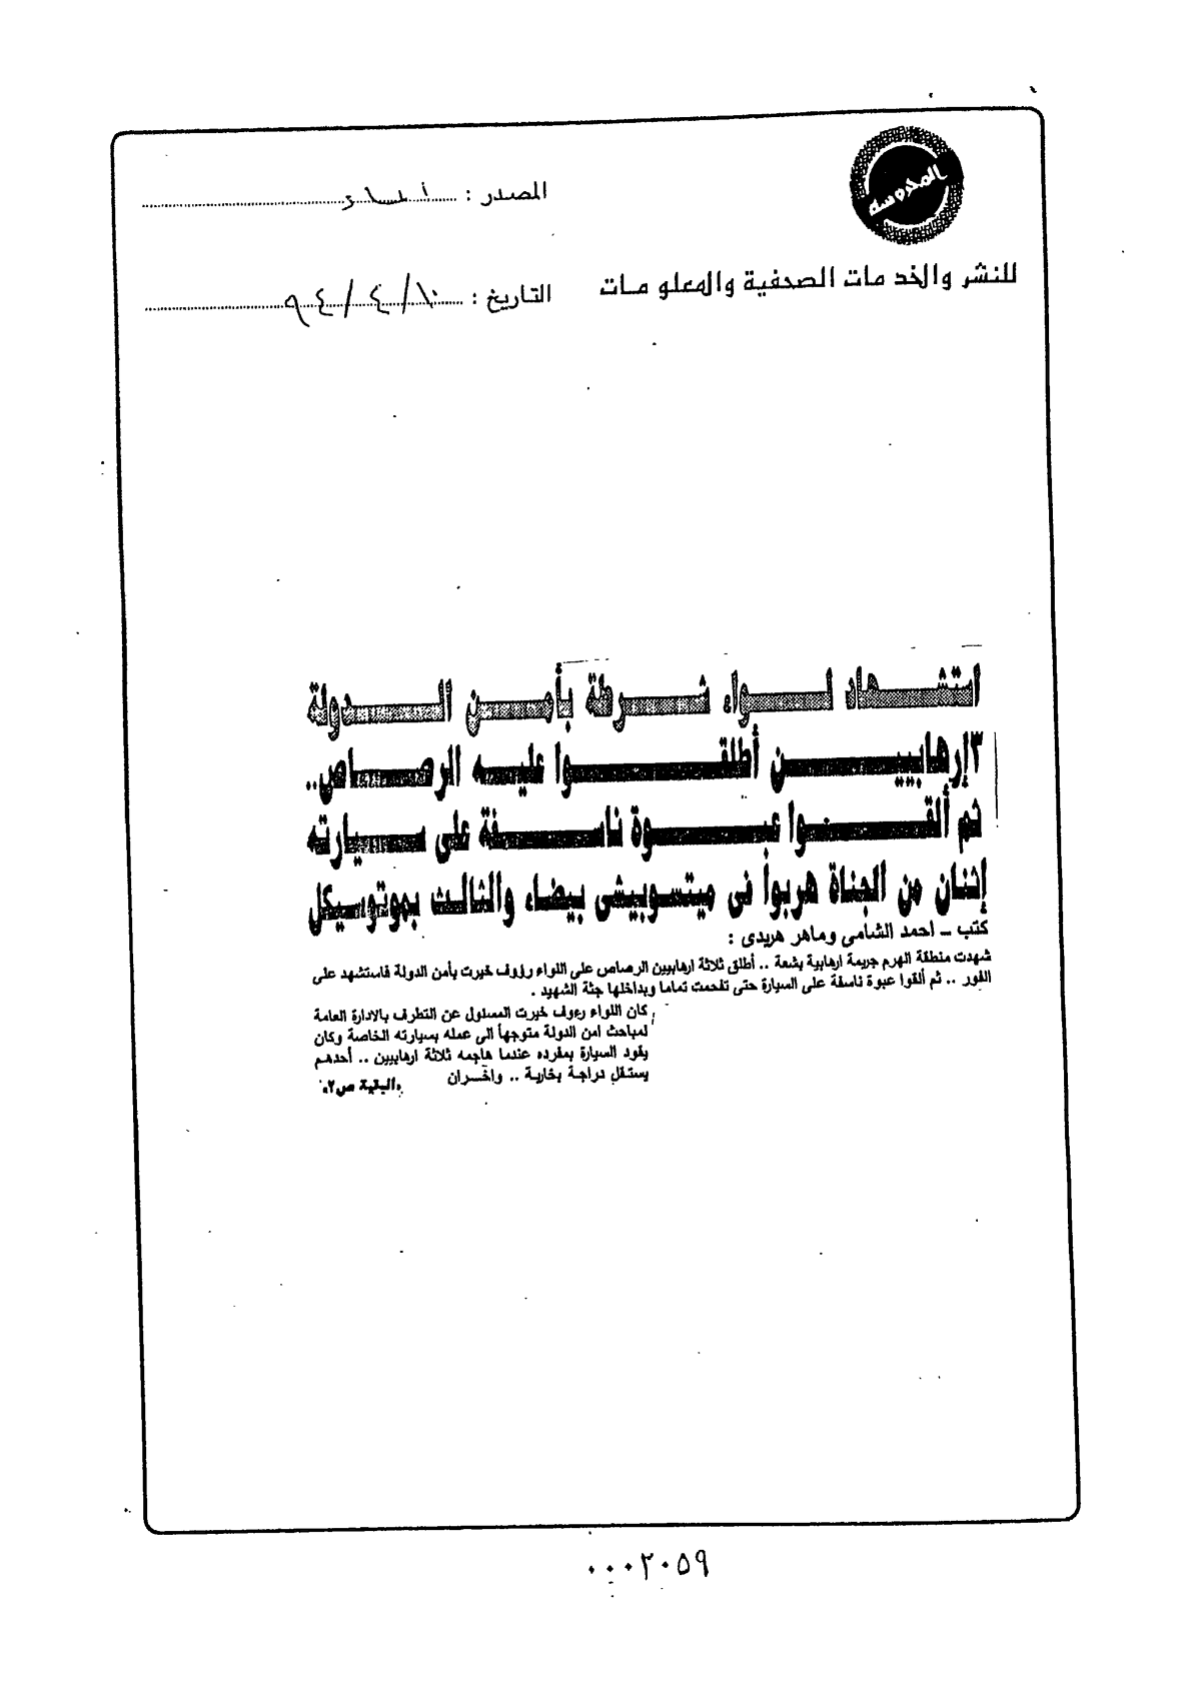 المحروسة
المصدر : أخبار
للنشر والخدمات الصحفية والمعلومات
التاريخ : ١٠/٤/٩٤
استشهاد لواء شرطة بأمن الدولة
٣ إرهابيين أطلقوا عليه الرصاص..
ثم ألقوا عبوة ناسفة على سيارته
إثنان من الجناة هربوا فى ميتسوبيشى بيضاء والثالث بموتوسيكل
كتب ـ احمد الشامى وماهر هريدى :
شهدت منطقة الهرم جريمة ارهابية بشعة .. أطلق ثلاثة ارهابيين الرصاص على اللواء رؤوف خيرت بأمن الدولة فاستشهد على
الفور .. ثم ألقوا عبوة ناسفة على السيارة حتى تفحمت تماما وبداخلها جثة الشهيد .
كان اللواء رءوف خيرت المسئول عن التطرف بالادارة العامة
لمباحث امن الدولة متوجهاً الى عمله بسيارته الخاصة وكان
يقود السيارة بمفرده عندما هاجمه ثلاثة ارهابيين .. أحدهم
يستقل دراجة بخارية .. وأخران «البقية ص٢»
٠٠٠٢٠٥٩